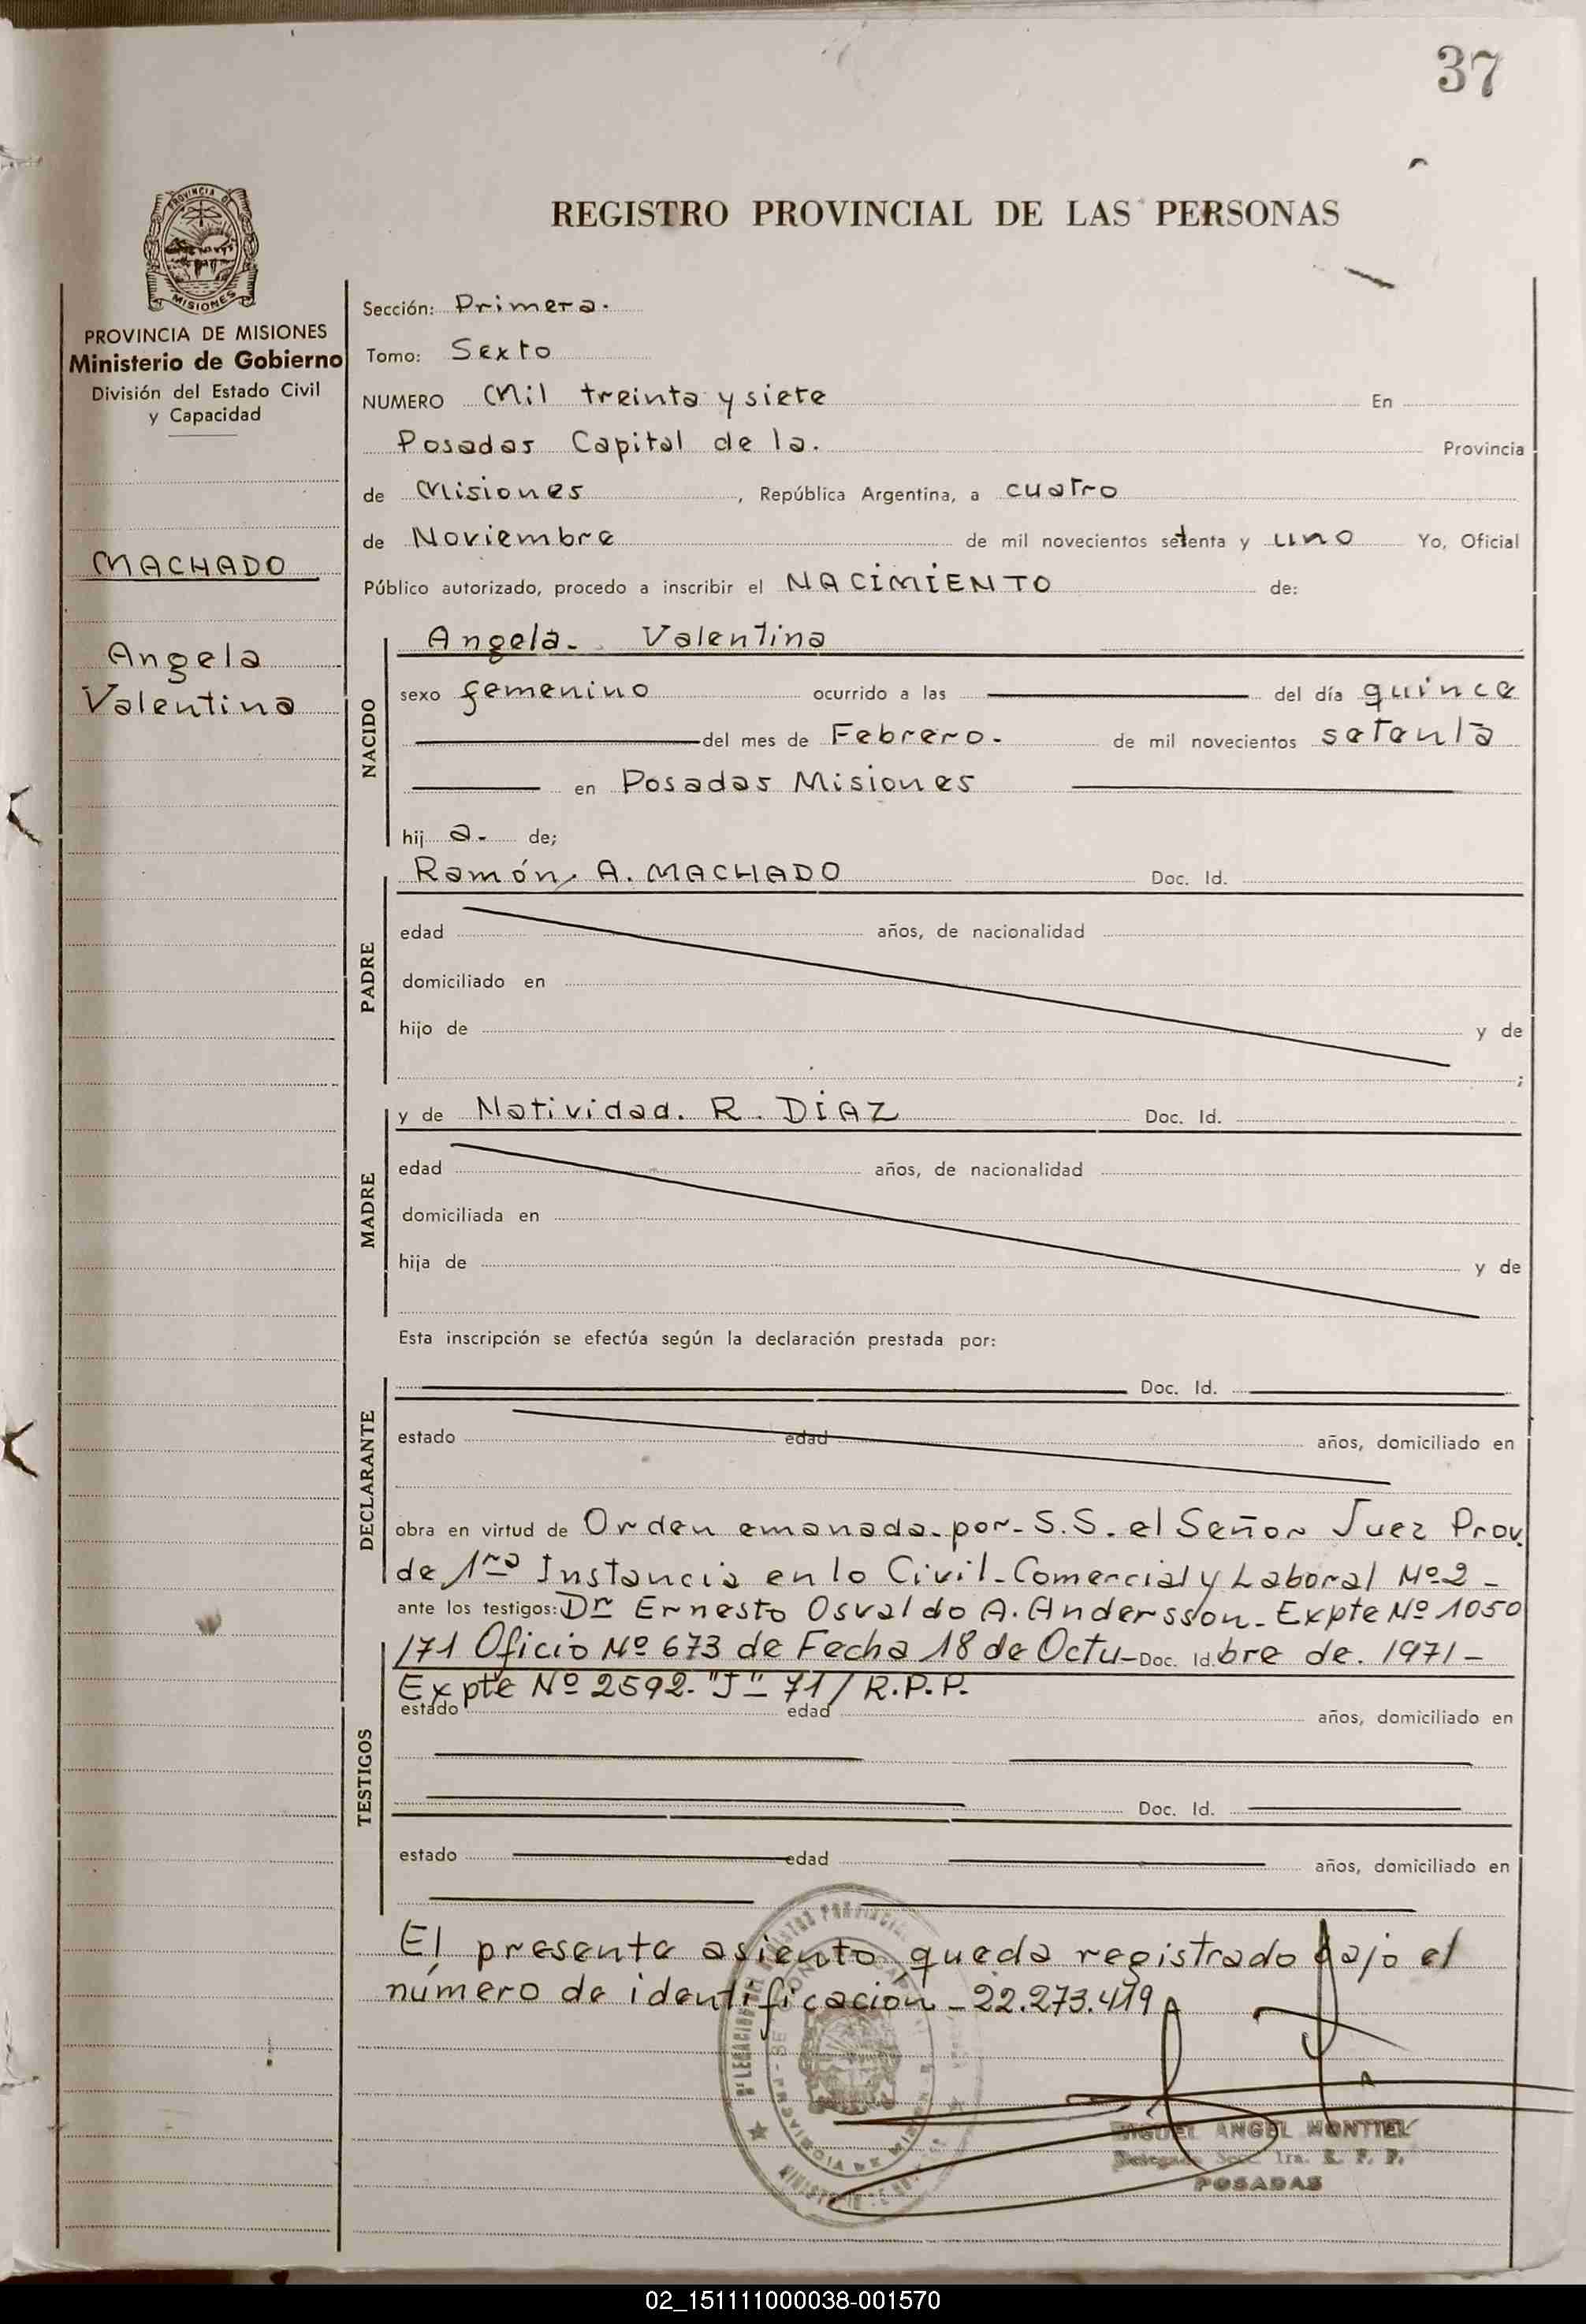 37
REGISTRO PROVINCIAL DE LAS PERSONAS
PROVINCIA DE
MISIONES
PROVINCIA DE MISIONES
Ministerio de Gobierno
División del Estado Civil
y Capacidad
MACHADO
Angela
Valentina
Sección: Primera.
Tomo: Sexto
NUMERO Mil treinta y siete En
Posadas Capital de la. Provincia
de Misiones, República Argentina, a cuatro
de Noviembre de mil novecientos setenta y uno Yo, Oficial
Público autorizado, procedo a inscribir el NACIMIENTO de:
NACIDO
Angela. Valentina
sexo femenino ocurrido a las del día quince
del mes de Febrero. de mil novecientos setenta
en Posadas Misiones
hij a. de;
PADRE
Ramón, A. MACHADO Doc. Id.
edad años, de nacionalidad
domiciliado en
hijo de y de
;
MADRE
y de Natividad. R. DIAZ Doc. Id.
edad años, de nacionalidad
domiciliada en
hija de y de
Esta inscripción se efectúa según la declaración prestada por:
DECLARANTE
Doc. Id.
estado edad años, domiciliado en
obra en virtud de Orden emanada. por. S.S. el Señor Juez Prov.
de 1ra Instancia en lo Civil. Comercial y Laboral Nº 2 -
ante los testigos: Dr Ernesto Osvaldo A. Andersson. Expte Nº 1050
/71 Oficio Nº 673 de Fecha 18 de Octu- Doc. Id. bre de. 1971 -
Expte Nº 2592. "J" 71/R.P.P.
TESTIGOS
estado edad años, domiciliado en
Doc. Id.
estado edad años, domiciliado en
El presente asiento queda registrado bajo el
número de identificación - 22.273.419
MIGUEL ANGEL MONTIEL
Delegado Secc. 1ra. R. P. P.
POSADAS
02_151111000038-001570